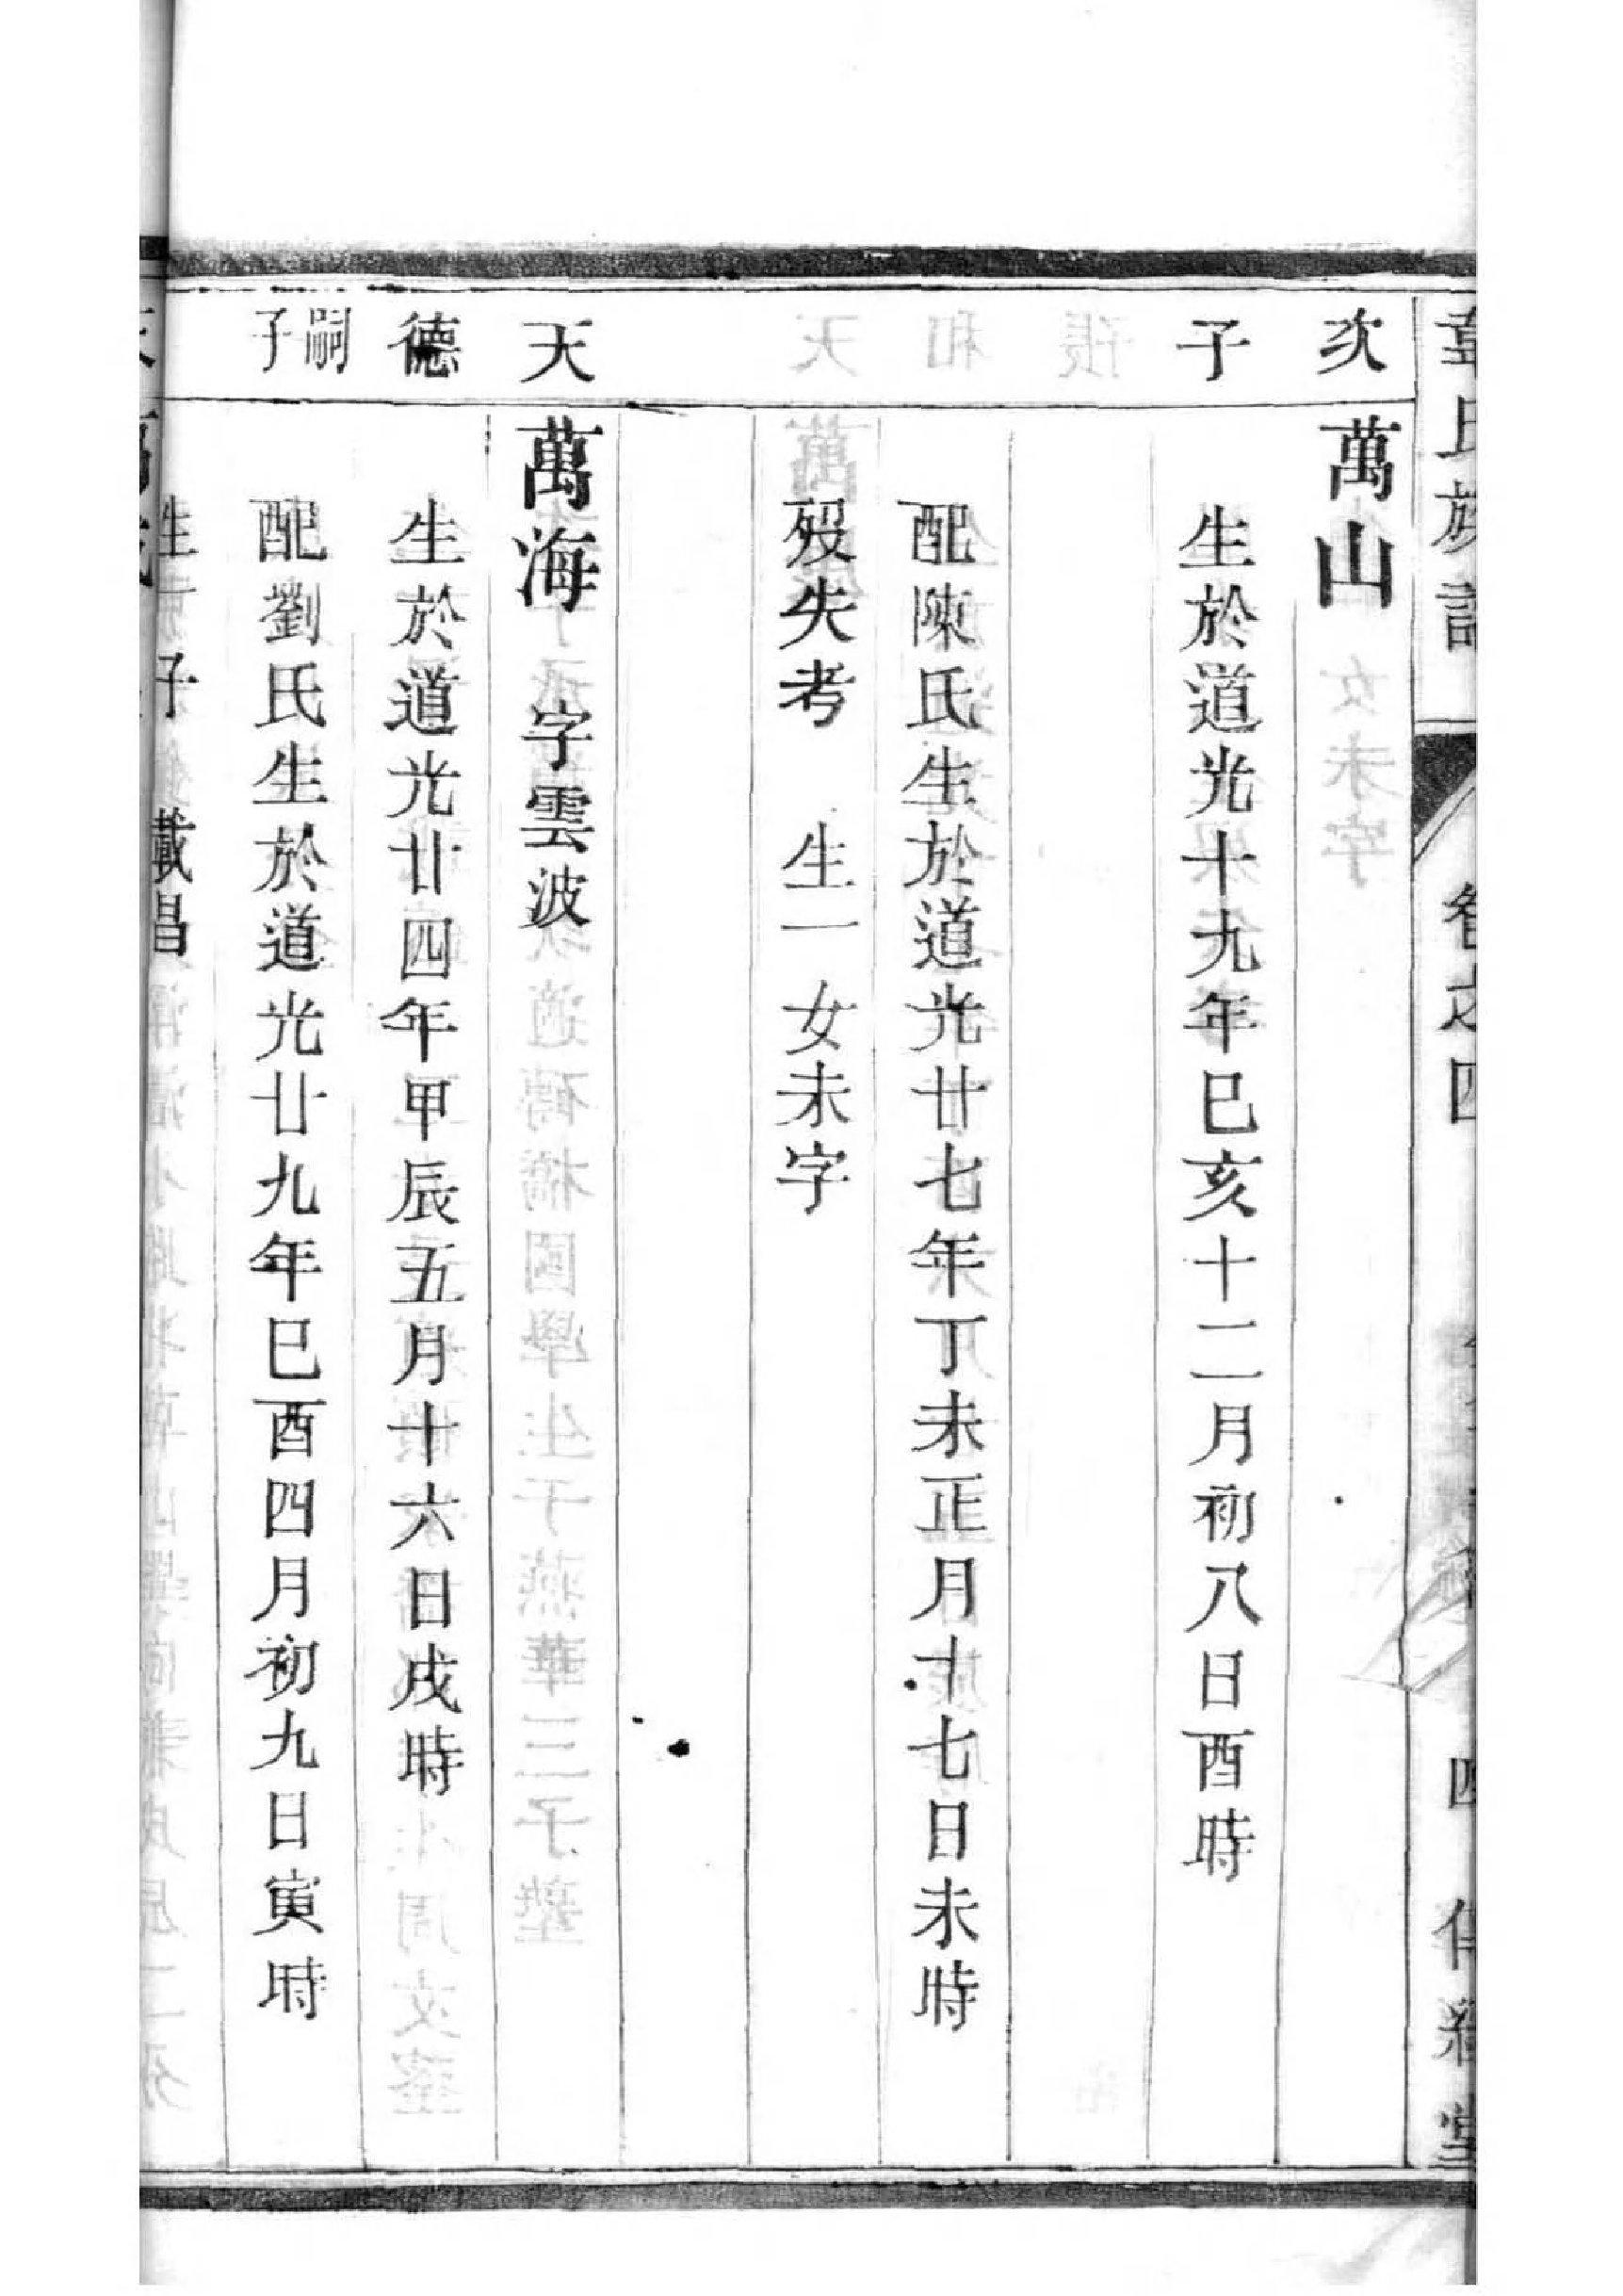 韋氏族譜 智之四 四
次子
萬山
生於道光十九年巳亥十二月初八日酉時
配陳氏生於道光廿七年丁未正月十七日未時
歿失考 生一女未字
天德嗣子
萬海 字雲波
生於道光廿四年甲辰五月十六日戌時
配劉氏生於道光廿九年巳酉四月初九日寅時
生 子 載昌